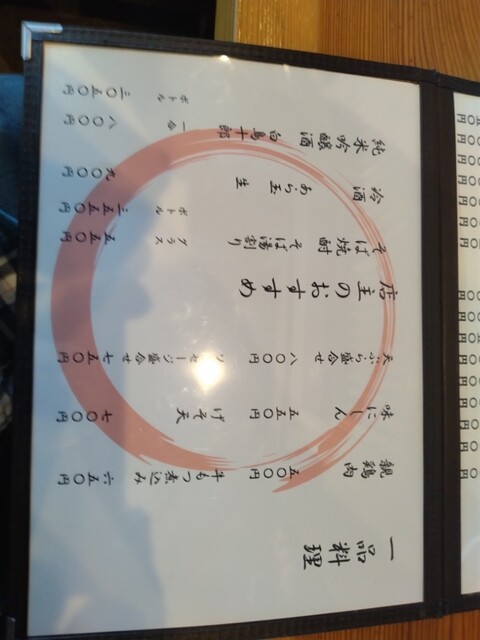 一品料理
親鶏肉 五〇〇円 牛もつ煮込み 六五〇円
味にしん 五五〇円 げそ天 七〇〇円
天ぷら盛合せ 八〇〇円 ソーセージ盛合せ 七五〇円
店主のおすすめ
そば焼酎 そば湯割り グラス 五五〇円
ボトル
冷酒 あら玉 生 九〇〇円
純米吟醸酒 白鳥十郎 一合 八〇〇円
ボトル